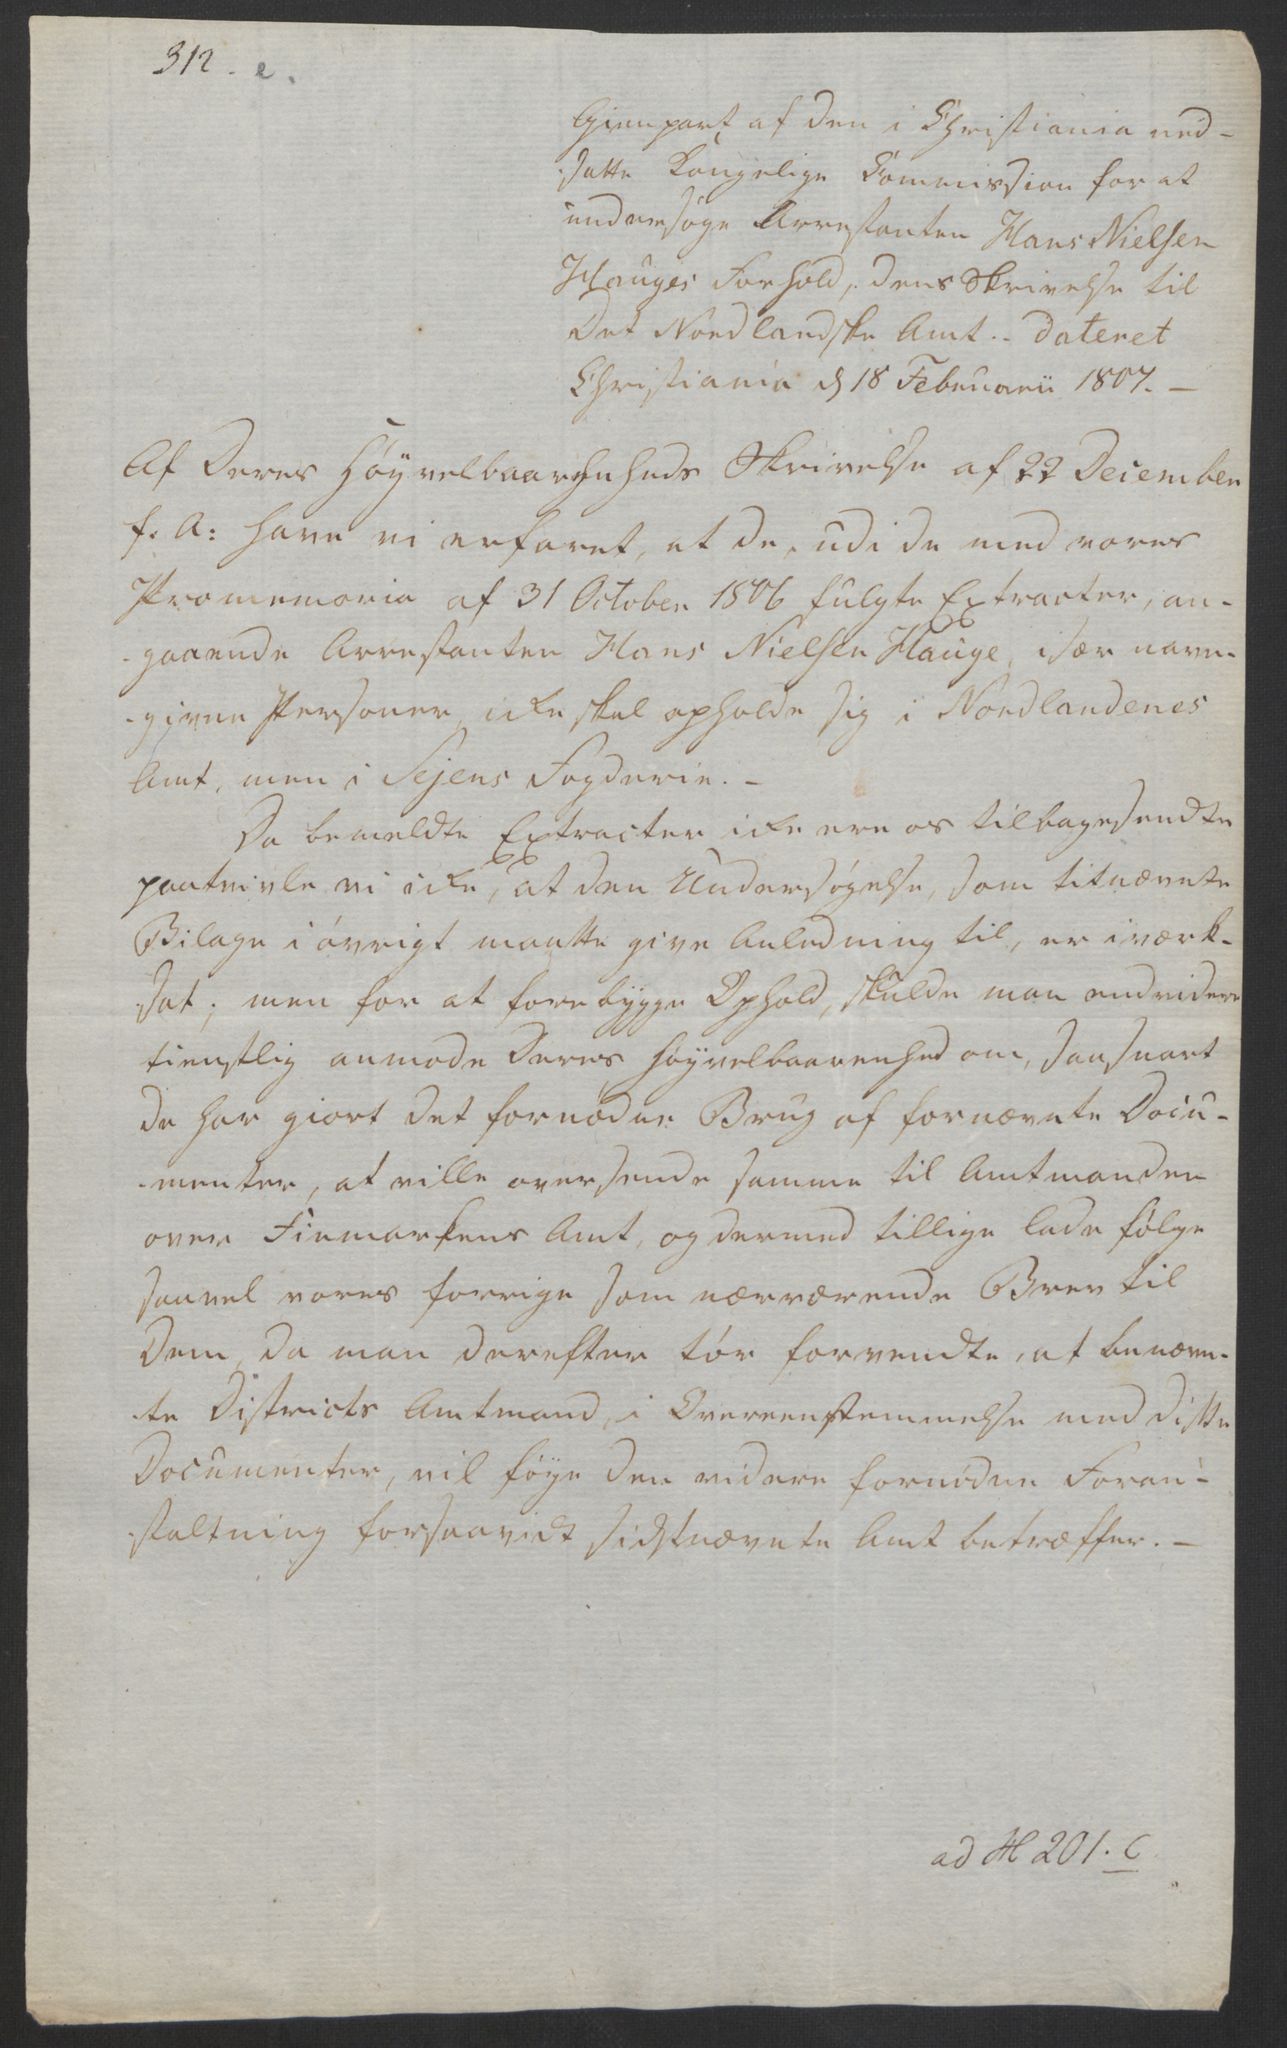 312. e.
Gienpart af den i Christiania ned-
satte Kongelige Commission for at
undersøge Arrestanten Hans Nielsen
Hauges Forhold, dens Skrivelse til
Det Nordlandske Amt.. dateret
Christiania d 18 Februarii 1807. -
Af Deres Høyvelbaarenheds Skrivelse af 22 December
f. A: have vi erfaret, at de, udi de med vores
Promemoria af 31 October 1806 fulgte Extracter, an-
-gaaende Arrestanten Hans Nielsen Hauge, især navn-
-givne Personer, icke skal opholde sig i Nordlandenes
Amt, men i Sejens Fogderie. -
Da bemeldte Extracter icke ere os tilbagesendte
paatvivle vi icke, at den Undersøgelse, som titnævnte
Bilage i øvrigt maatte give Anledning til, er iværk-
sat; men for at forebygge Ophold, skulde man endvidere
tienstlig anmode Deres Høyvelbaarenhed om, saasnart
de har giort det fornødne Brug af fornævnte Docu-
-menter, at ville oversende samme til Amtmanden
over Finmarkens Amt, og dermed tillige lade følge
saavel vores forrige som nærværende Brev til
Dem, da man derefter tør forvendte, at benævn-
-te Districts Amtmand, i Overeenstemmelse med disse
Documenter, vil føye den videre fornødne Foran-
-staltning forsaavidt sidstnævnte Amt betræffer. -
ad N 201. C